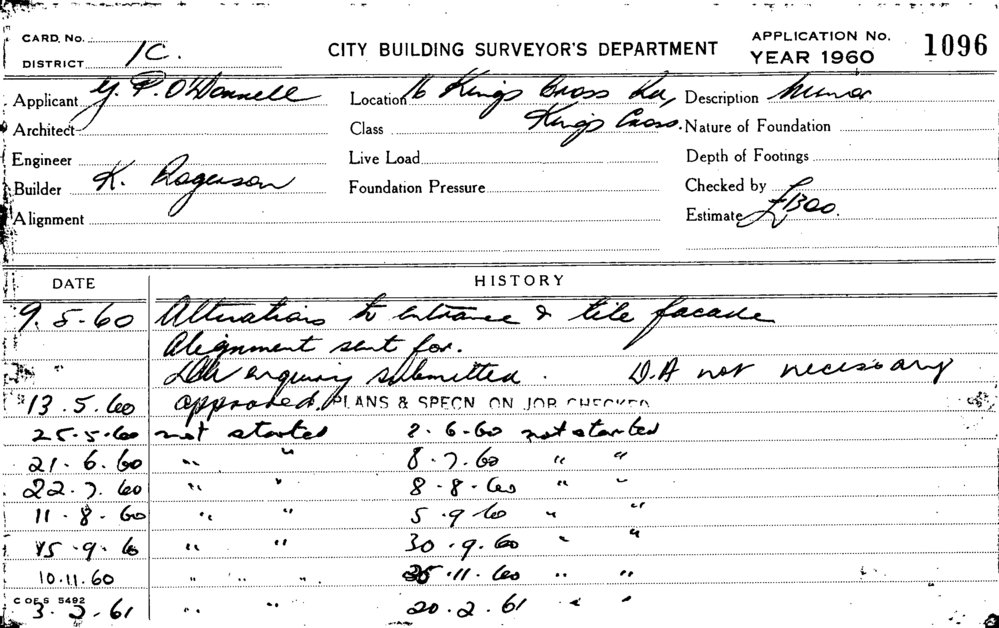 CARD. No.
DISTRICT 1C.
CITY BUILDING SURVEYOR'S DEPARTMENT
APPLICATION No. 1096
YEAR 1960
Applicant G. P. O'Donnell
Location 16 Kings Cross Rd,
Description Minor
Architect
Class Kings Cross.
Nature of Foundation
Engineer
Live Load
Depth of Footings
Builder K. Rogerson
Foundation Pressure
Checked by
Alignment
Estimate £1300.
DATE HISTORY
9.5.60 Alterations to entrance & tile facade
Alignment sent for.
enquiry submitted. D.A not necessary
13.5.60 approved. PLANS & SPECN ON JOB CHECKED
25.5.60 not started 8.6.60 not started
21.6.60 " " 8.7.60 " "
22.7.60 " " 8.8.60 " "
11.8.60 " " 5.9.60 " "
15.9.60 " " 30.9.60 " "
10.11.60 " " " 25.11.60 " "
C OF S 5492
3.2.61 " " 20.2.61 " "